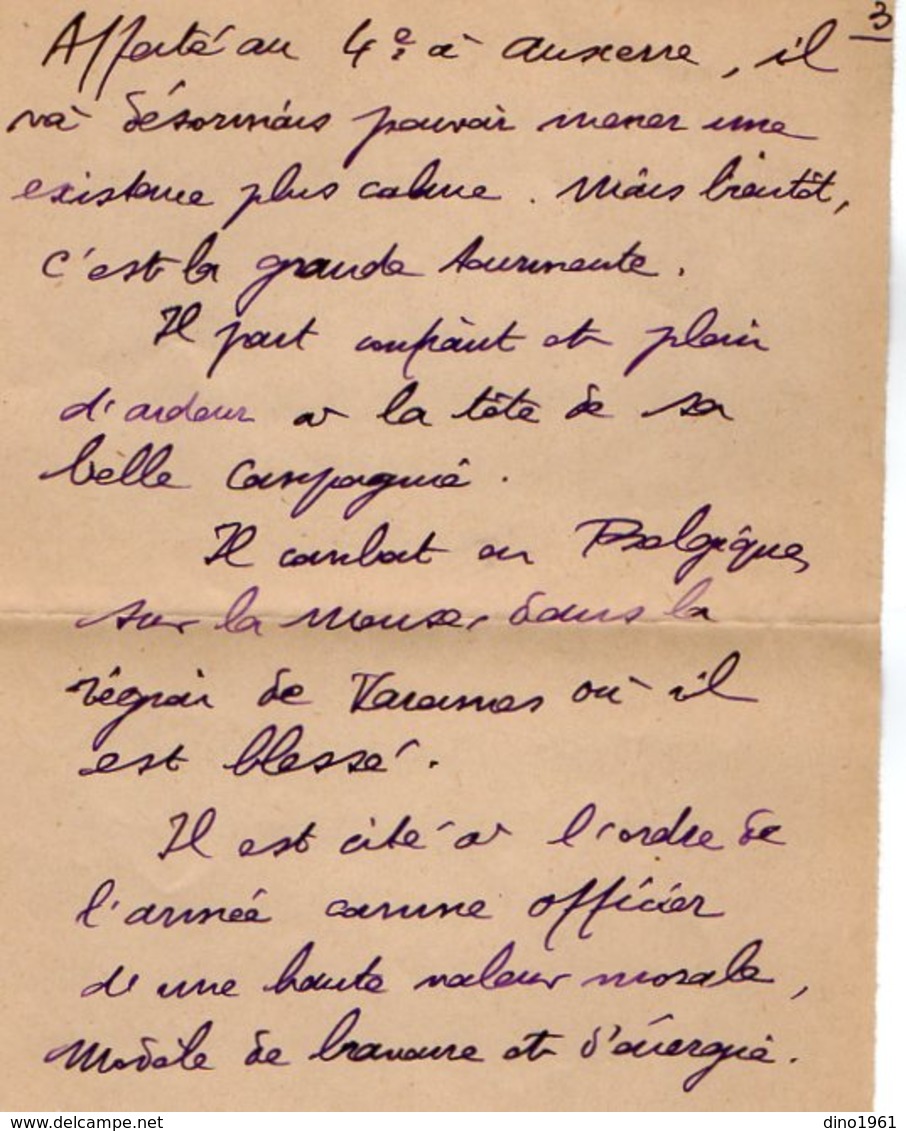 3
Affecté au 4e à Auxerre, il
va désormais pouvoir mener une
existence plus calme. Mais bientôt,
c'est la grande tourmente.
Il part confiant et plein
d'ardeur à la tête de sa
belle Compagnie.
Il combat en Belgique,
sur la Meuse, dans la
région de Varennes où il
est blessé.
Il est cité à l'ordre de
l'armée comme officier
d'une haute valeur morale,
modèle de bravoure et d'énergie.
dino1961